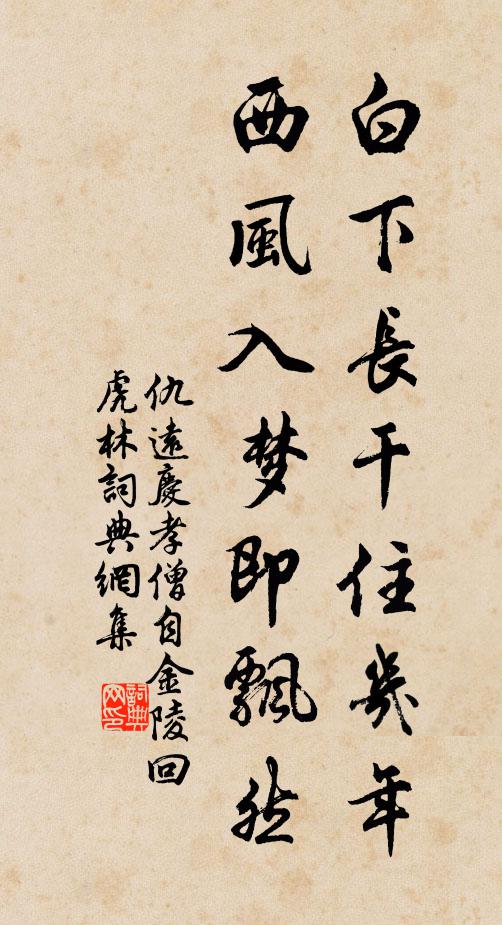 白下長干住幾年
西風入梦即飄然
仇遠慶孝僧自金陵回
虎林詞典網集
詞典网印